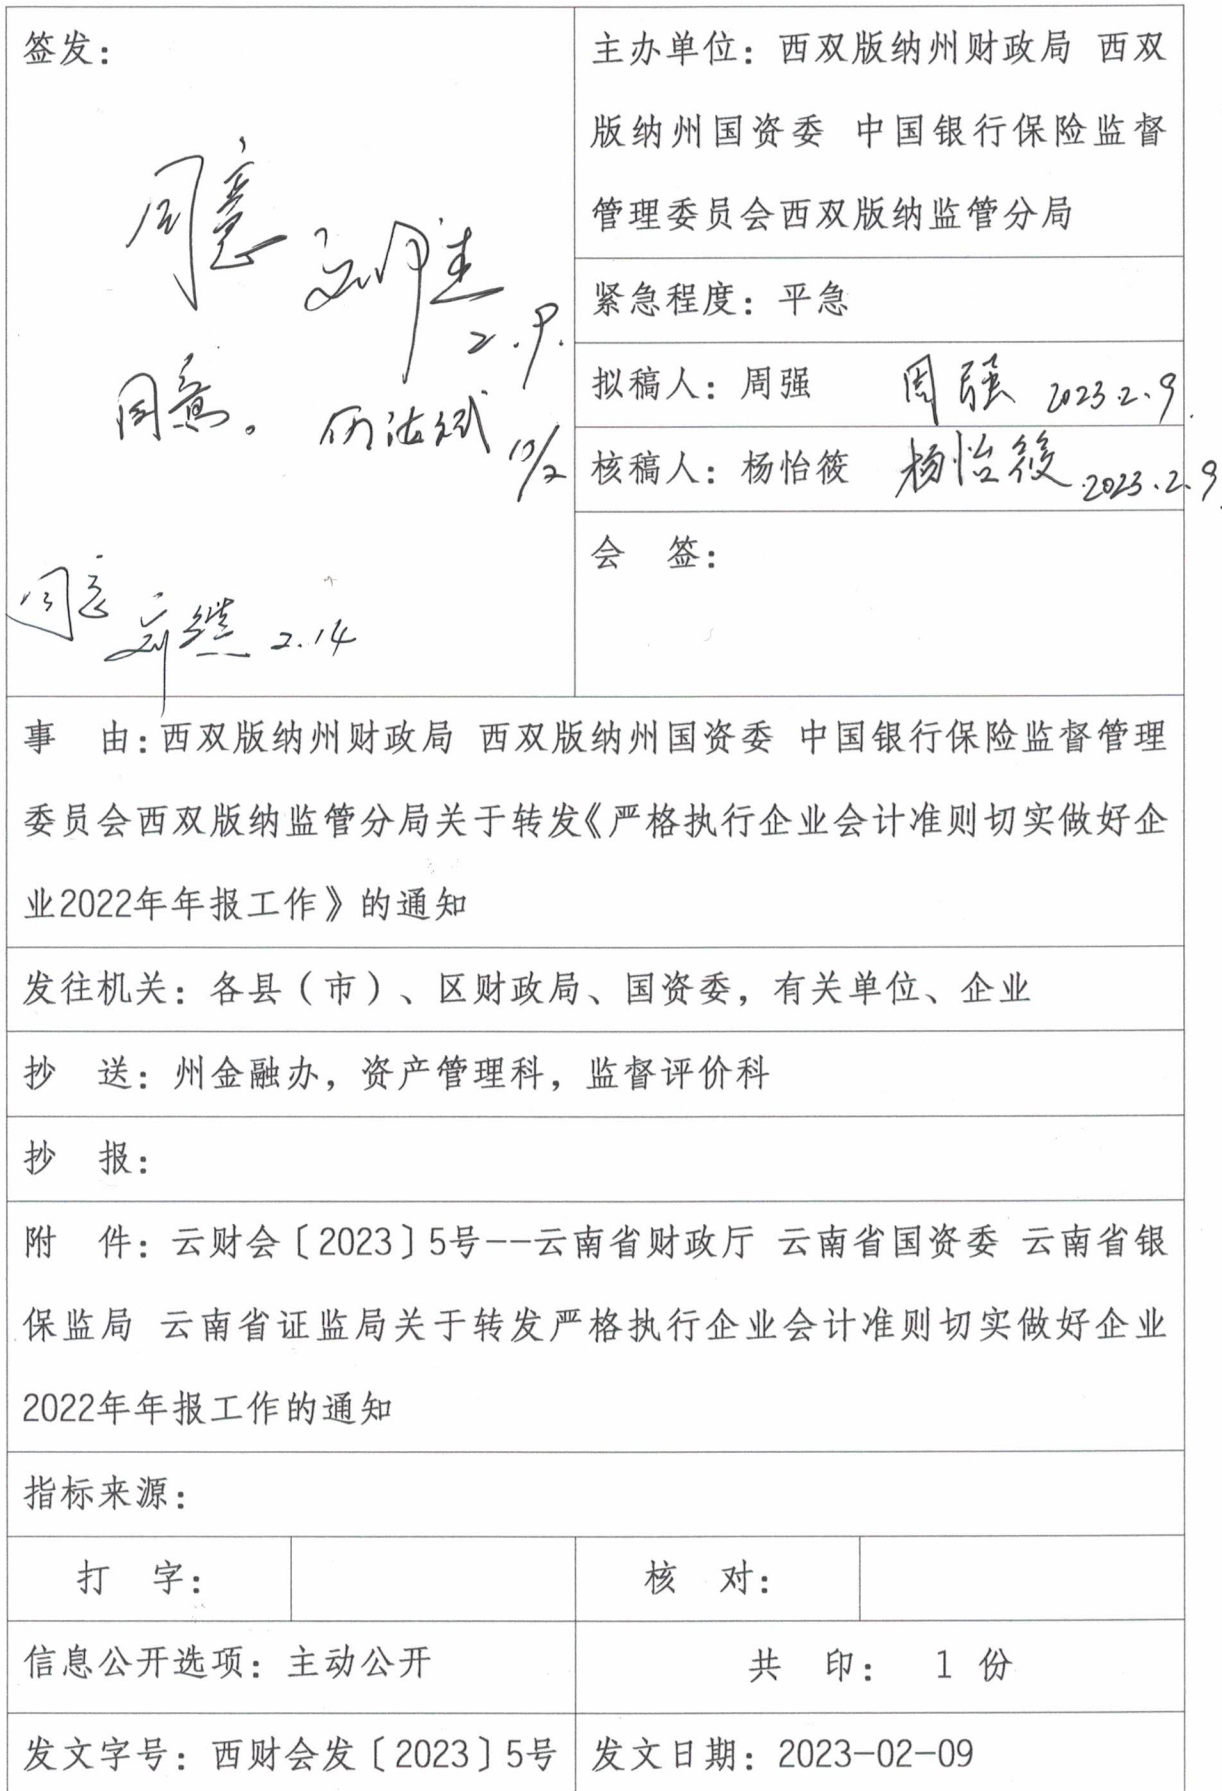 签发：
同意
2.9.
同意。
10/2
同意
2.14
主办单位：西双版纳州财政局 西双
版纳州国资委 中国银行保险监督
管理委员会西双版纳监管分局
紧急程度：平急
拟稿人：周强 周强 2023.2.9.
核稿人：杨怡筱 杨怡筱 2023.2.9.
会 签：
事 由：西双版纳州财政局 西双版纳州国资委 中国银行保险监督管理
委员会西双版纳监管分局关于转发《严格执行企业会计准则切实做好企
业2022年年报工作》的通知
发往机关：各县（市）、区财政局、国资委，有关单位、企业
抄 送：州金融办，资产管理科，监督评价科
抄 报：
附 件：云财会〔2023〕5号--云南省财政厅 云南省国资委 云南省银
保监局 云南省证监局关于转发严格执行企业会计准则切实做好企业
2022年年报工作的通知
指标来源：
打 字：
核 对：
信息公开选项：主动公开
共 印： 1 份
发文字号：西财会发〔2023〕5号
发文日期：2023-02-09